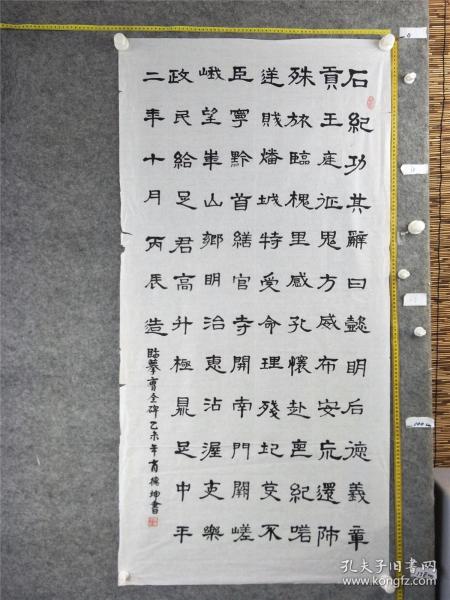 石紀功其辭曰懿明后德義章
貢王庭征鬼方威布安荒還師
殊旅臨槐里感孔懷赴喪紀嗟
逆賊燔城特受命理殘圮芟不
臣寧黔首繕官寺開南門闕嵯
峨望華山鄉明治惠沾渥吏樂
政民給足君高升極鼎足中平
二年十月丙辰造
臨摹曹全碑乙未年肖德坤書
孔夫子旧书网
www.kongfz.com